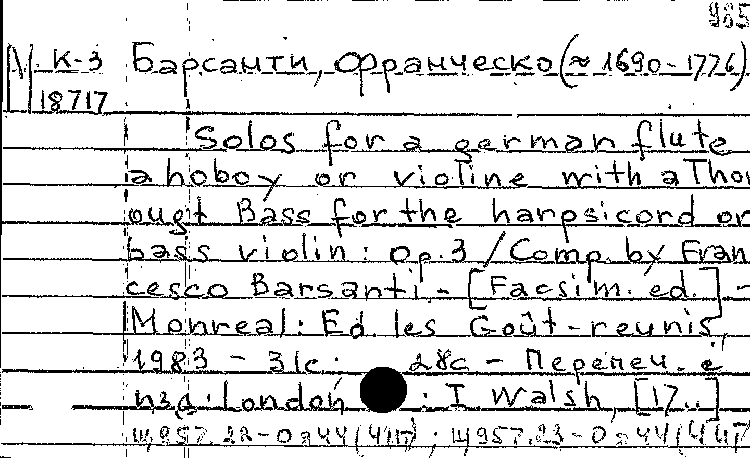 965
К-3 Барсанти, Франческо (≈ 1690-1776)
18717
Solos for a german flute
a hoboy or violine with a Thor
ought Bass for the harpsicord or
bass violin: op.3 / Comp. by Fran
cesco Barsanti. - [Facsim. ed.] -
Monreal: Ed. les Goût-reunis,
1983 - 31с. 28с - Перепеч. с
изд. London : I Walsh, [17..]
Щ957.22-0я44(4Ит) ; Щ957.23-0я44(4Ит